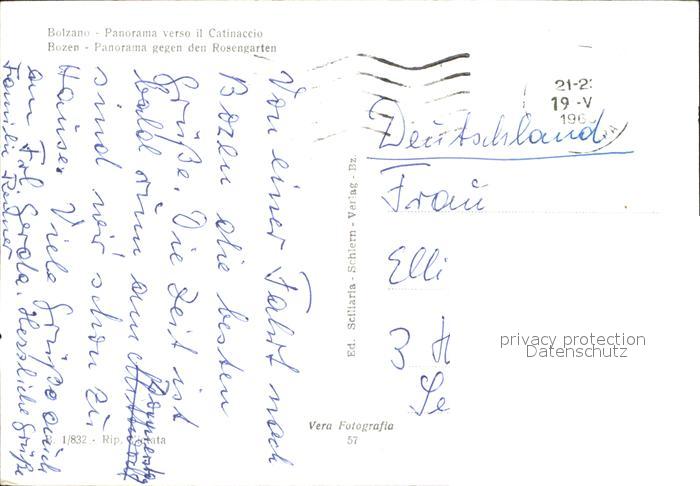 Bolzano - Panorama verso il Catinaccio
Bozen - Panorama gegen den Rosengarten
Von einer Fahrt nach
Bozen die besten
Grüße. Die Zeit ist
bald rum am Mittwoch Donnerstag
sind wir schon zu
Hause. Viele Grüße auch
an Frl. Gerda. Herzliche Grüße
Familie
Ed. Sciliaria - Schlern - Verlag - Bz.
21-2
19 -V
196
Deutschland
Frau
Elli
3 H
Se
privacy protection
Datenschutz
Vera Fotografia
57
1/832 - Rip. vietata